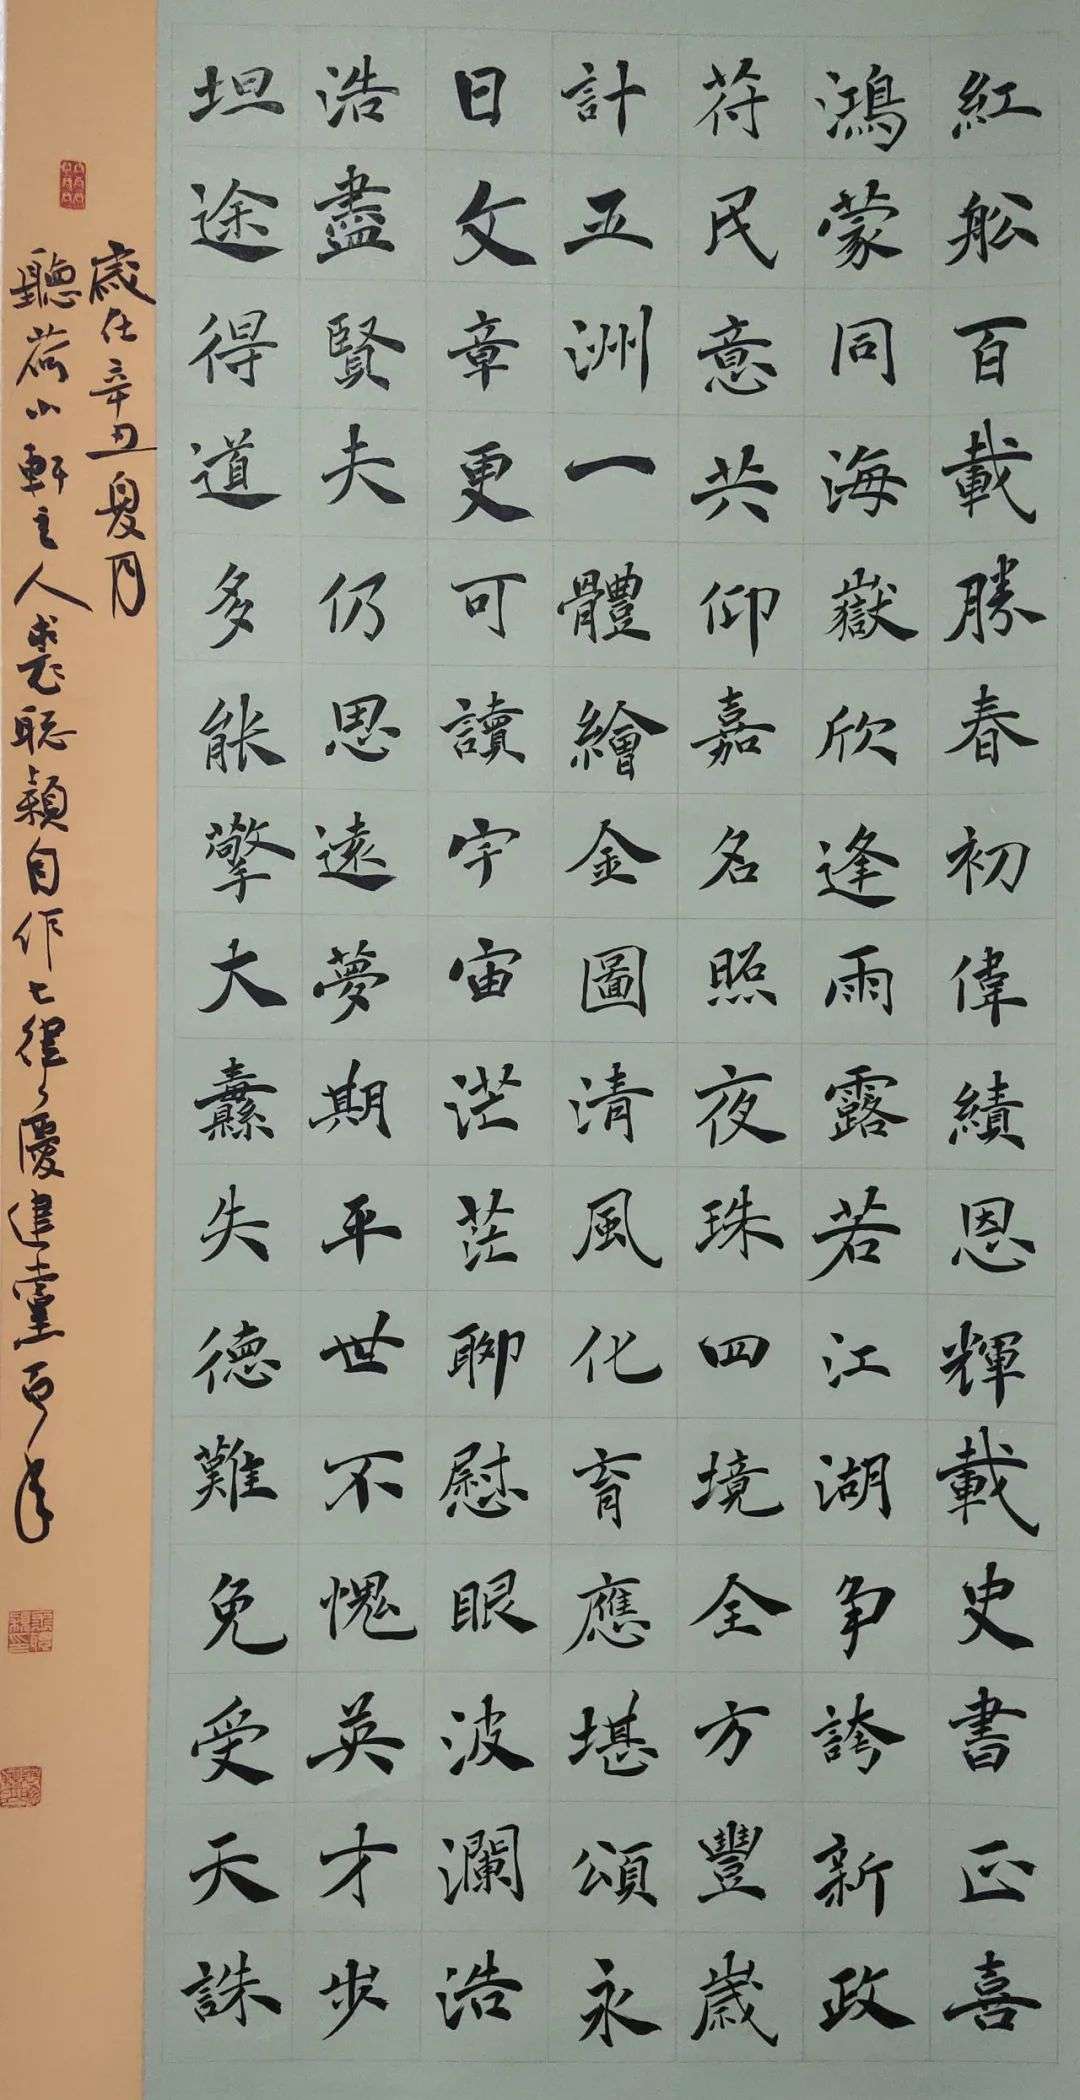 紅船百載勝春初偉績恩輝載史書正喜
鴻蒙同海嶽欣逢雨露若江湖争誇新政
符民意共仰嘉名照夜珠四境全方豐歲
計五洲一體繪金圖清風化育應堪頌永
日文章更可讀宇宙茫茫聊慰眼波瀾浩
浩盡賢夫仍思遠夢期平世不愧英才步
坦途得道多能擎大纛失德難免受天誅
歲在辛丑夏月
聽荷小軒主人裘聰穎自作七律慶建黨百年